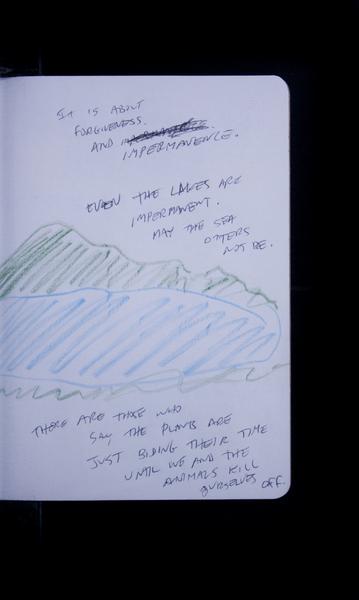 IT IS ABOUT
FORGIVENESS.
AND
IMPERMANENCE.
EVEN THE LAKES ARE
IMPERMANENT.
MAY THE SEA
OTTERS
NOT BE.
THERE ARE THOSE WHO
SAY THE PLANTS ARE
JUST BIDING THEIR TIME
UNTIL WE AND THE
ANIMALS KILL
OURSELVES OFF.